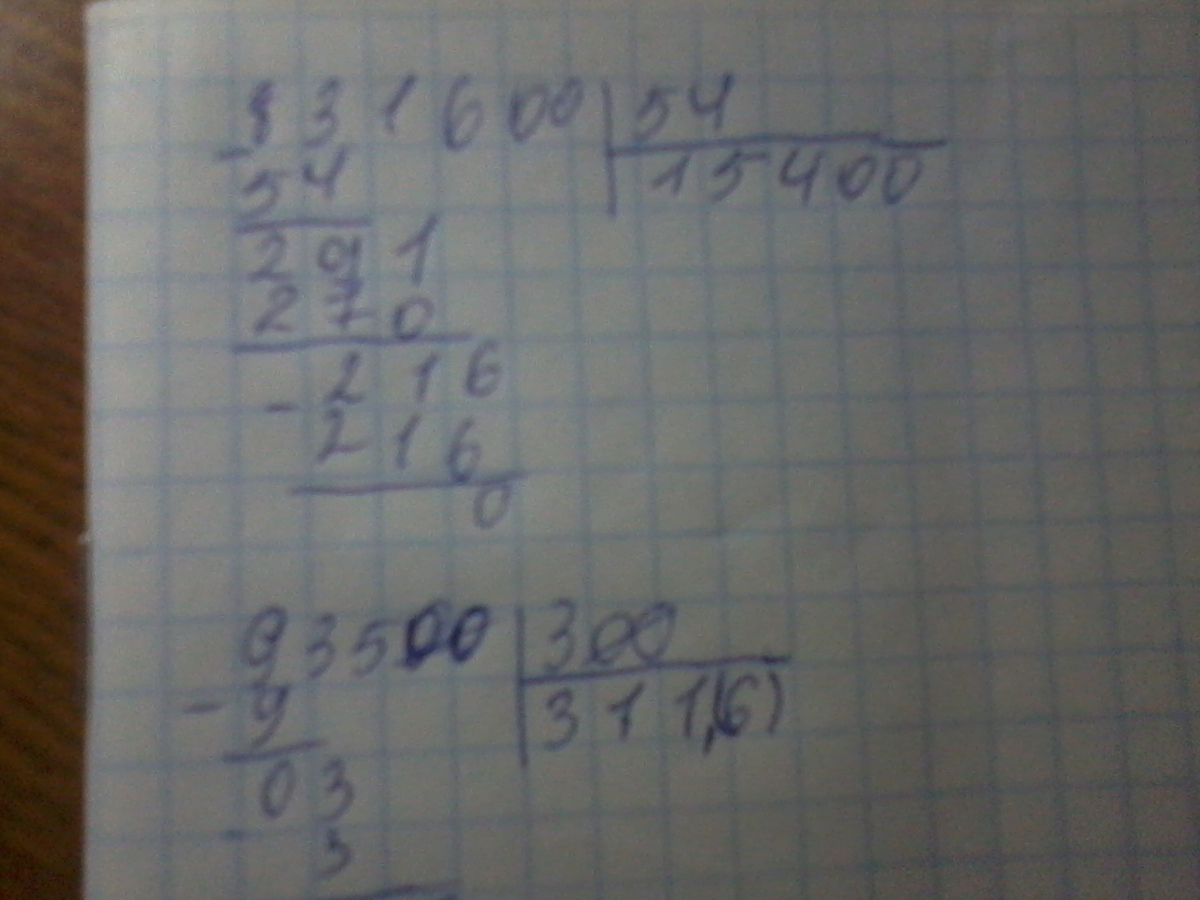 831600 | 54
- 54 | 15400
291
270
- 216
216
0
93500 | 300
- 9 | 311,(6)
03
- 3